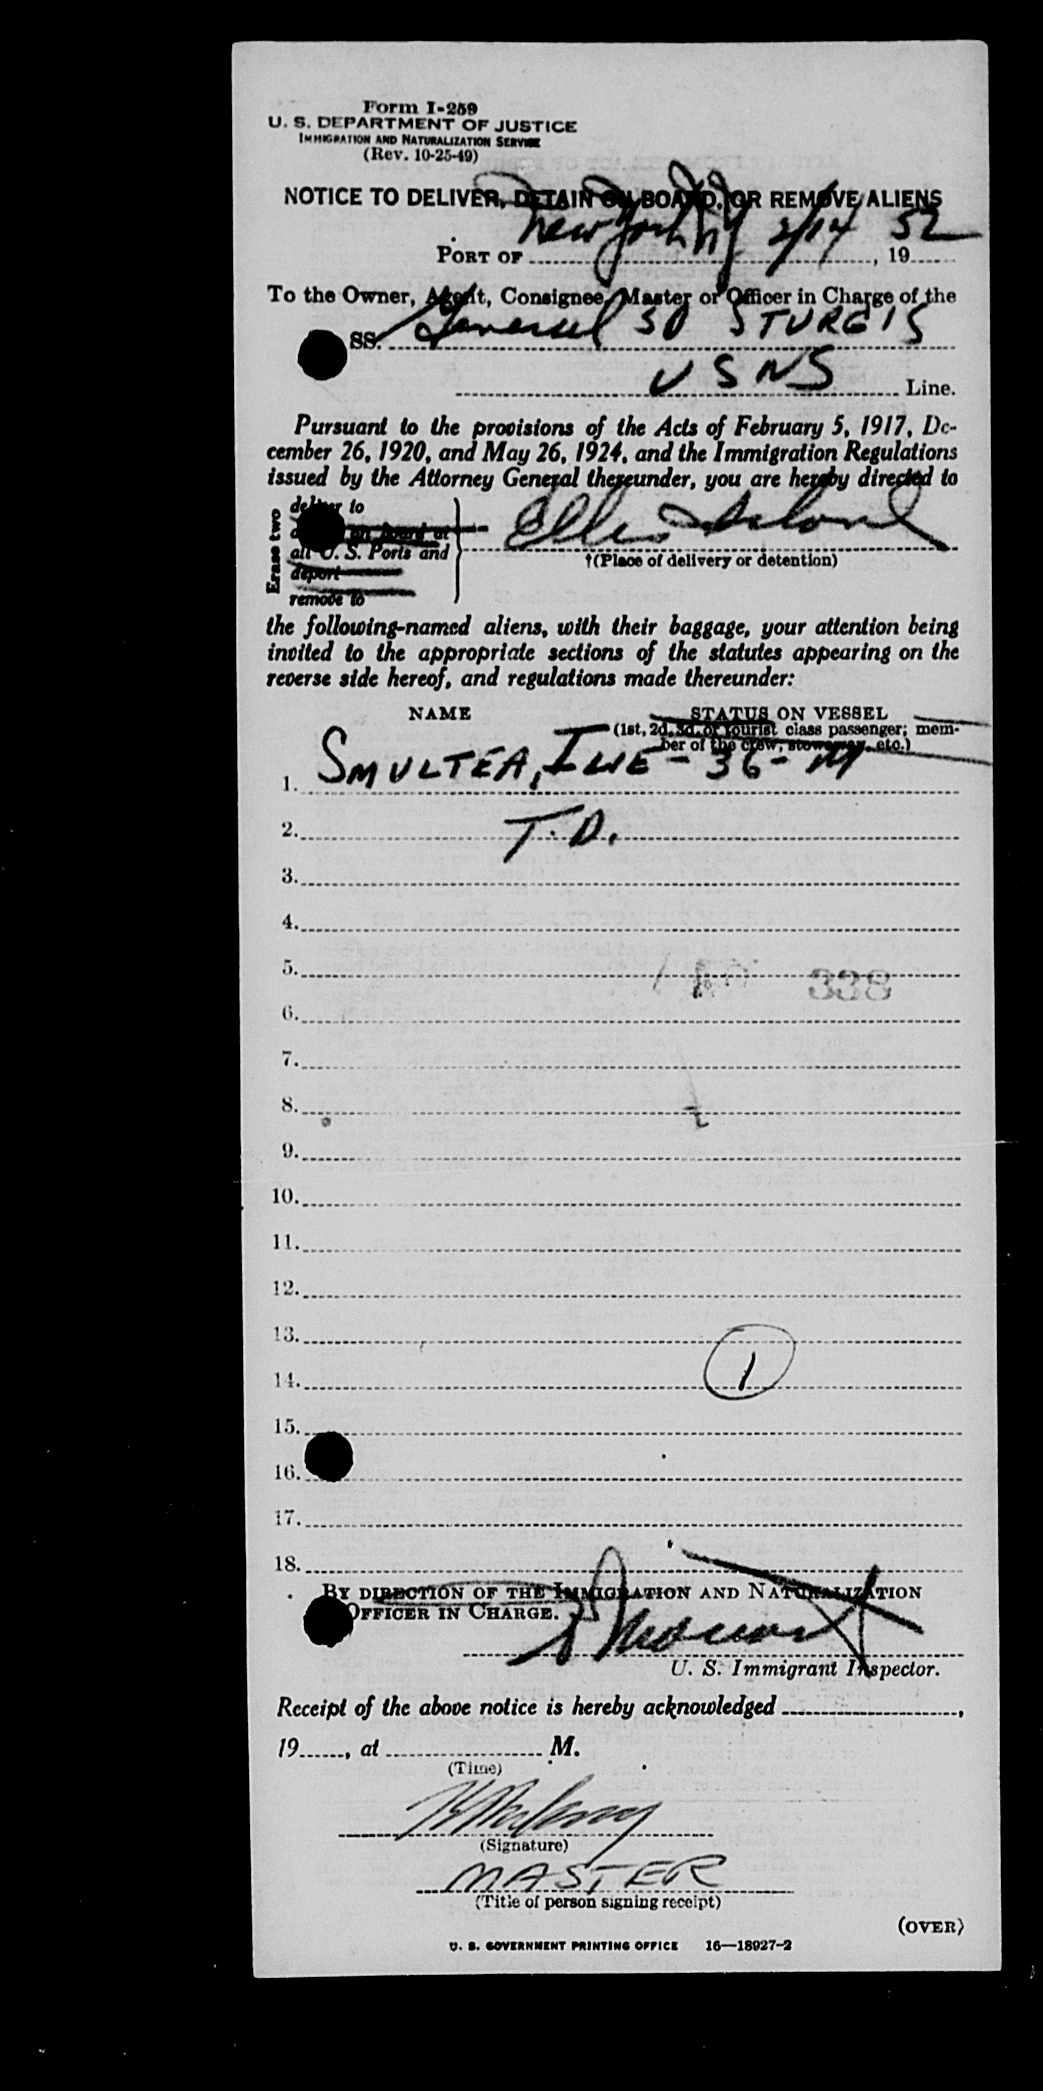 Form I-259
U. S. DEPARTMENT OF JUSTICE
IMMIGRATION AND NATURALIZATION SERVICE
(Rev. 10-25-49)
NOTICE TO DELIVER, DETAIN ON BOARD, OR REMOVE ALIENS
PORT OF New York NY 2/14, 1952
To the Owner, Agent, Consignee, Master or Officer in Charge of the
SS. General SD STURGIS
USNS Line.
Pursuant to the provisions of the Acts of February 5, 1917, De-
cember 26, 1920, and May 26, 1924, and the Immigration Regulations
issued by the Attorney General thereunder, you are hereby directed to
Erase two
deliver to
on board at
all U. S. Ports and
deport
remove to
Ellis Island
†(Place of delivery or detention)
the following-named aliens, with their baggage, your attention being
invited to the appropriate sections of the statutes appearing on the
reverse side hereof, and regulations made thereunder:
NAME STATUS ON VESSEL
(1st, 2d, 3d, or tourist class passenger; mem-
ber of the crew; stowaway, etc.)
1. SMULTEA, ILIE - 36 - M
2. T.D.
3.
4.
5.
338
6.
7.
8.
9.
10.
11.
12.
13.
1
14.
15.
16.
17.
18.
BY DIRECTION OF THE IMMIGRATION AND NATURALIZATION
OFFICER IN CHARGE.
U. S. Immigrant Inspector.
Receipt of the above notice is hereby acknowledged,
19, at M.
(Time)
(Signature)
MASTER
(Title of person signing receipt)
(OVER)
U. S. GOVERNMENT PRINTING OFFICE 16—18927-2